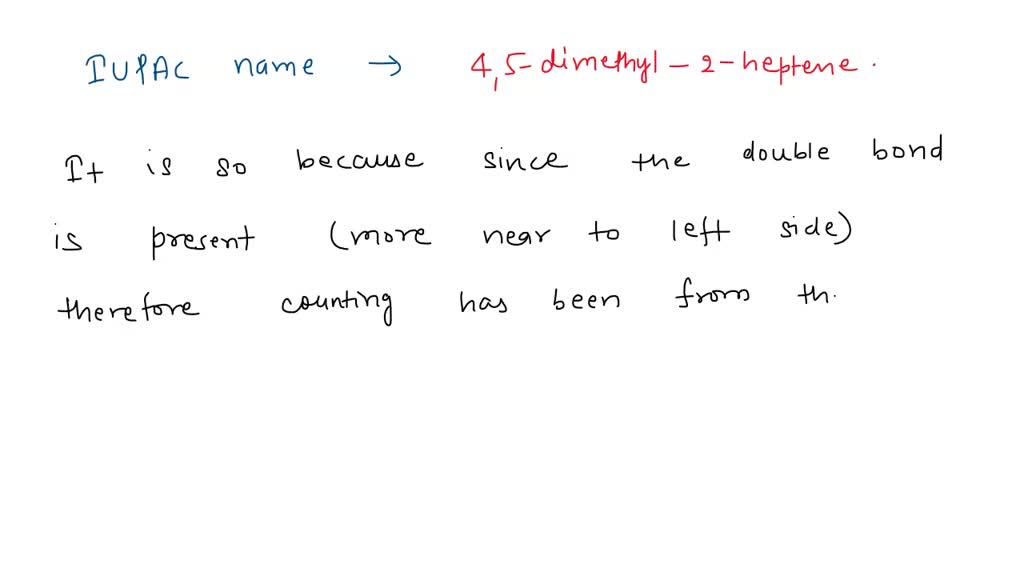 IUPAC name → 4,5-dimethyl-2-heptene.
It is so because since the double bond
is present (more near to left side)
therefore counting has been from th.